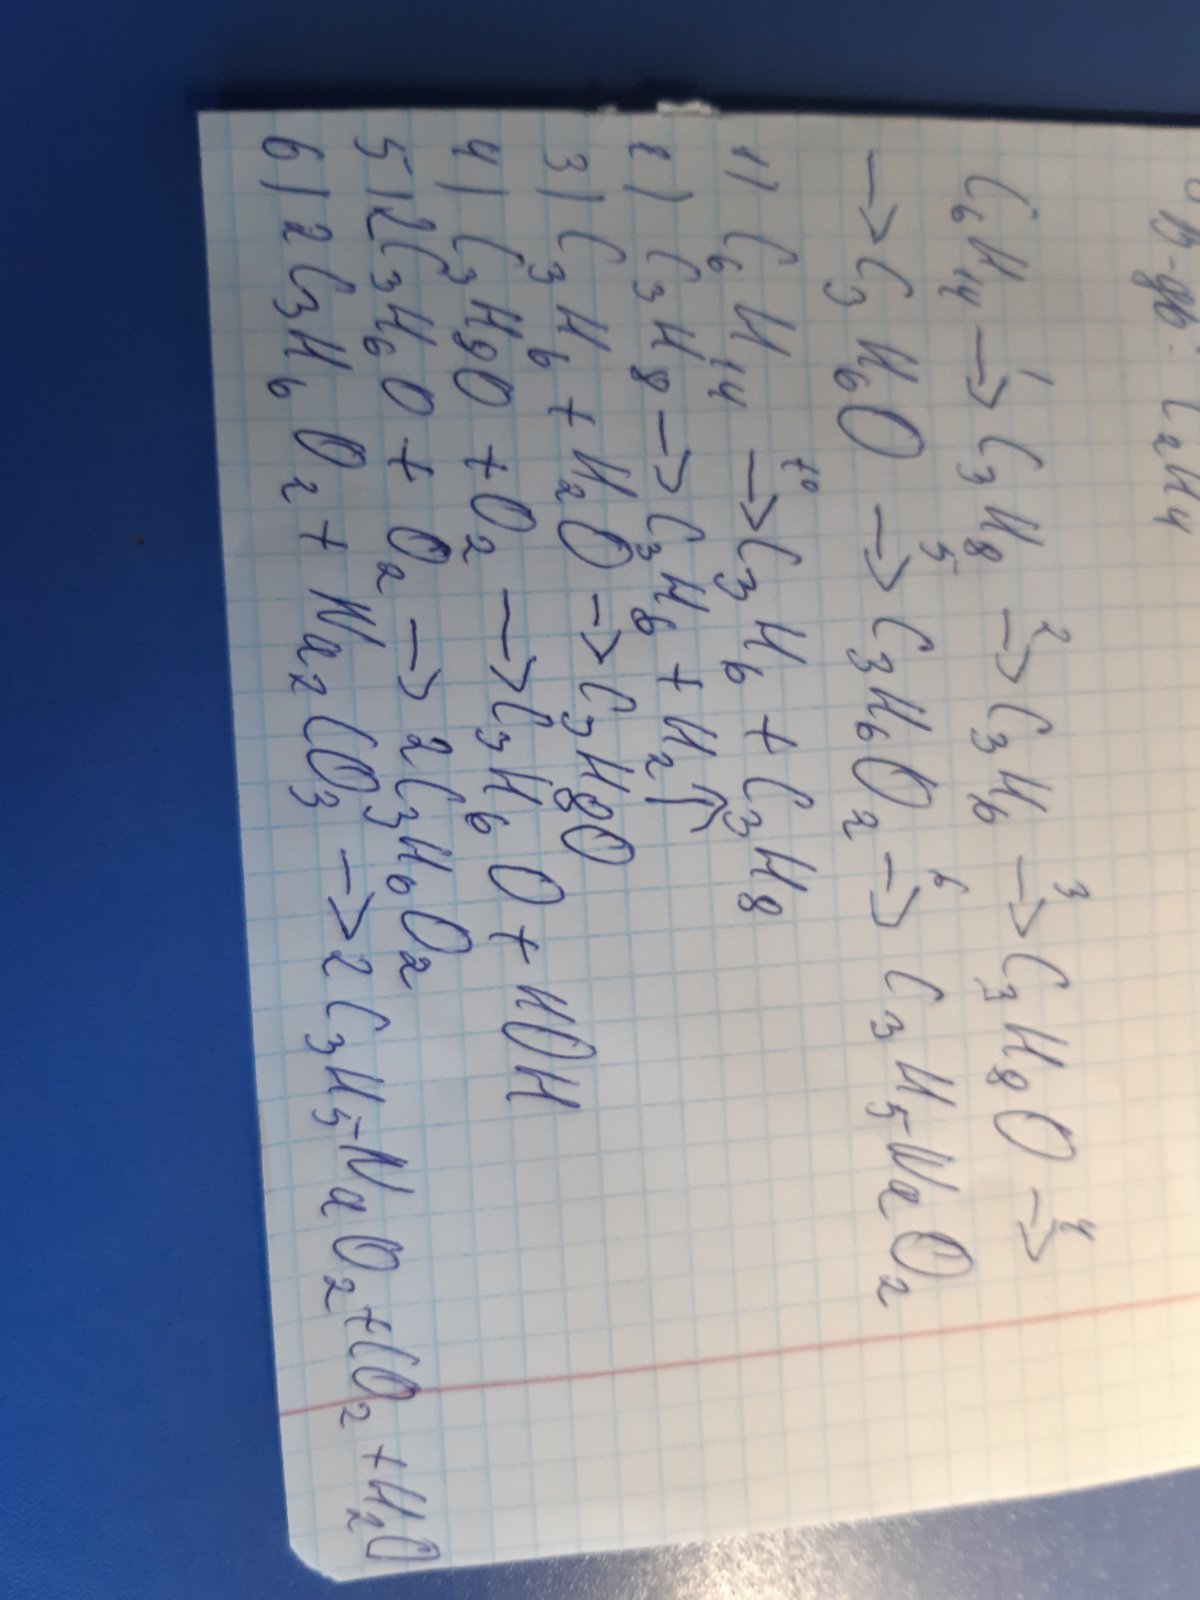 C₆H₁₄ →¹ C₃H₈ →² C₃H₆ →³ C₃H₈O →⁴
→ C₃H₆O →⁵ C₃H₆O₂ →⁶ C₃H₅NaO₂
1) C₆H₁₄ →ᵗ° C₃H₆ + C₃H₈
2) C₃H₈ → C₃H₆ + H₂↑
3) C₃H₆ + H₂O → C₃H₈O
4) C₃H8O + O₂ → C₃H₆O + HOH
5) 2C₃H₆O + O₂ → 2C₃H₆O₂
6) 2C₃H₆O₂ + Na₂CO₃ → 2C₃H₅NaO₂ + CO₂ + H₂O